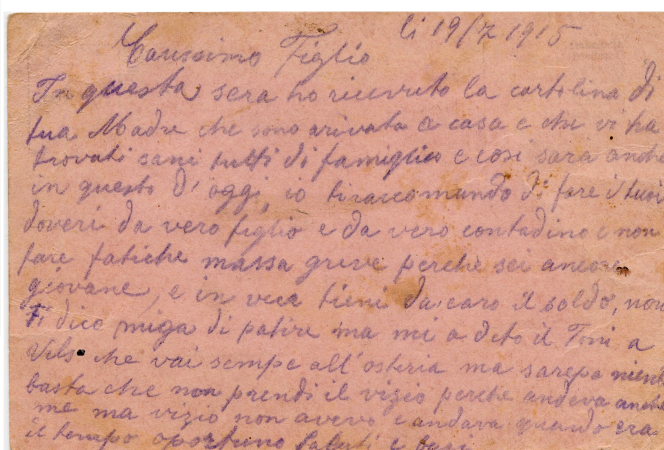 li 19/7 1915
Carissimo Figlio
In questa sera ho ricevuto la cartolina di
tua Madre che sono arivata a casa e che vi ha
trovati sani tutti di famiglia e cosi sara anche
in questo d'oggi, io ti raccomando di fare i tuoi
doveri da vero figlio e da vero contadino e non
fare fatiche massa greve perche sei ancora
giovane, e in vece tieni da caro il soldo, non
Ti dico miga di patire ma mi a deto il Toni a
che vai sempe all'osteria ma sarepa nient
basta che non prendi il vizio perche andeva anche
me ma vizio non avevo e andava quando era
il tempo oportuno Saluti e baci